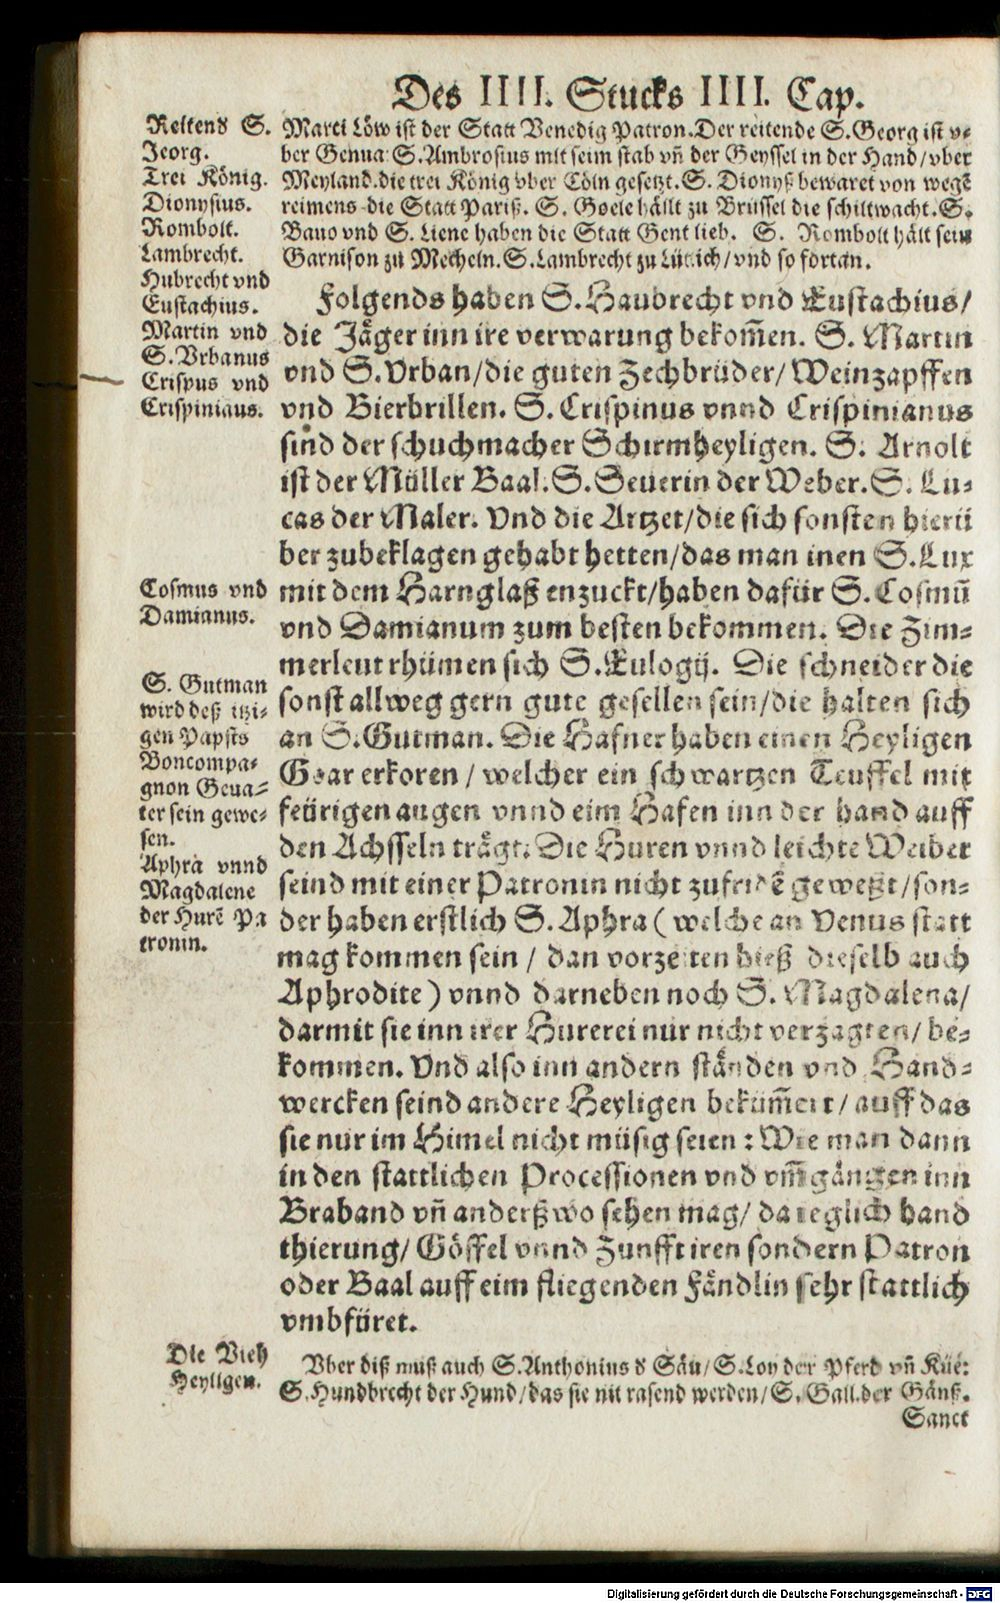 Des IIII. Stucks IIII. Cap.
Reitend S.
Jeorg.
Trei König.
Dionysius.
Rombolt.
Lambrecht.
Hubrecht vnd
Eustachius.
Martin vnd
S. Vrbanus
Crispus vnd
Crispinians.
Cosmus vnd
Damianus.
S. Gutman
wird deß itzi-
gen Papsts
Boncompa-
gnon Geua-
ter sein gewe-
sen.
Aphra vnnd
Magdalene
der Hurẽ Pa
tronin.
Die Vieh
Heyligen.
Marci Löw ist der Statt Venedig Patron. Der reitende S. Georg ist v-
ber Genua: S. Ambrosius mit seim stab vñ der Geyssel in der Hand/ vber
Meyland. die trei König vber Cöln gesetzt. S. Dionyß bewaret von wegẽ
reimens die Statt Pariß. S. Goele hällt zu Brüssel die schiltwacht. S.
Bauo vnd S. Liene haben die Statt Gent lieb. S. Rombolt hält sein
Garnison zu Mecheln. S. Lambrecht zu Lüttich/ vnd so fortan.
Folgends haben S. Haubrecht vnd Eustachius/
die Jäger inn ire verwarung bekom̃en. S. Martin
vnd S. Vrban/ die guten Zechbrüder/ Weinzapffen
vnd Bierbrillen. S. Crispinus vnnd Crispinianus
sind der schuchmacher Schirmheyligen. S. Arnolt
ist der Müller Baal. S. Seuerin der Weber. S. Lu-
cas der Maler. Vnd die Artzet/ die sich sonsten hierü
ber zubeklagen gehabt hetten/ das man inen S. Lux
mit dem Harnglaß enzuckt/ haben dafür S. Cosmũ
vnd Damianum zum besten bekommen. Die Zim-
merleut rhümen sich S. Eulogij. Die schneider die
sonst allweg gern gute gesellen sein/ die halten sich
an S. Gutman. Die Hafner haben einen Heyligen
Goar erkoren/ welcher ein schwartzen Teuffel mit
feürigen augen vnnd eim Hafen inn der hand auff
den Achsseln trägt. Die Huren vnnd leichte Weiber
seind mit einer Patronin nicht zufridẽ geweßt/ son-
der haben erstlich S. Aphra ( welche an Venus statt
mag kommen sein/ dan vorzeiten hieß dieselb auch
Aphrodite ) vnnd darneben noch S. Magdalena/
darmit sie inn irer Hurerei nur nicht verzagten/ be-
kommen. Vnd also inn andern ständen vnd Hand-
wercken seind andere Heyligen bekümm̃ert/ auff das
sie nur im Himel nicht müsig seien: Wie man dann
in den stattlichen Processionen vnd vm̃gängen inn
Braband vñ anderßwo sehen mag/ da ieglich hand
thierung/ Göffel vnnd Zunfft iren sondern Patron
oder Baal auff eim fliegenden Fändlin sehr stattlich
vmbfüret.
Vber diß must auch S. Anthonius d Säu/ S. Loy der Pferd vñ Küe:
S. Hundbrecht der Hund/ das sie nit rasend werden/ S. Gall. der Gänß.
Sanct
Digitalisierung gefördert durch die Deutsche Forschungsgemeinschaft - DFG